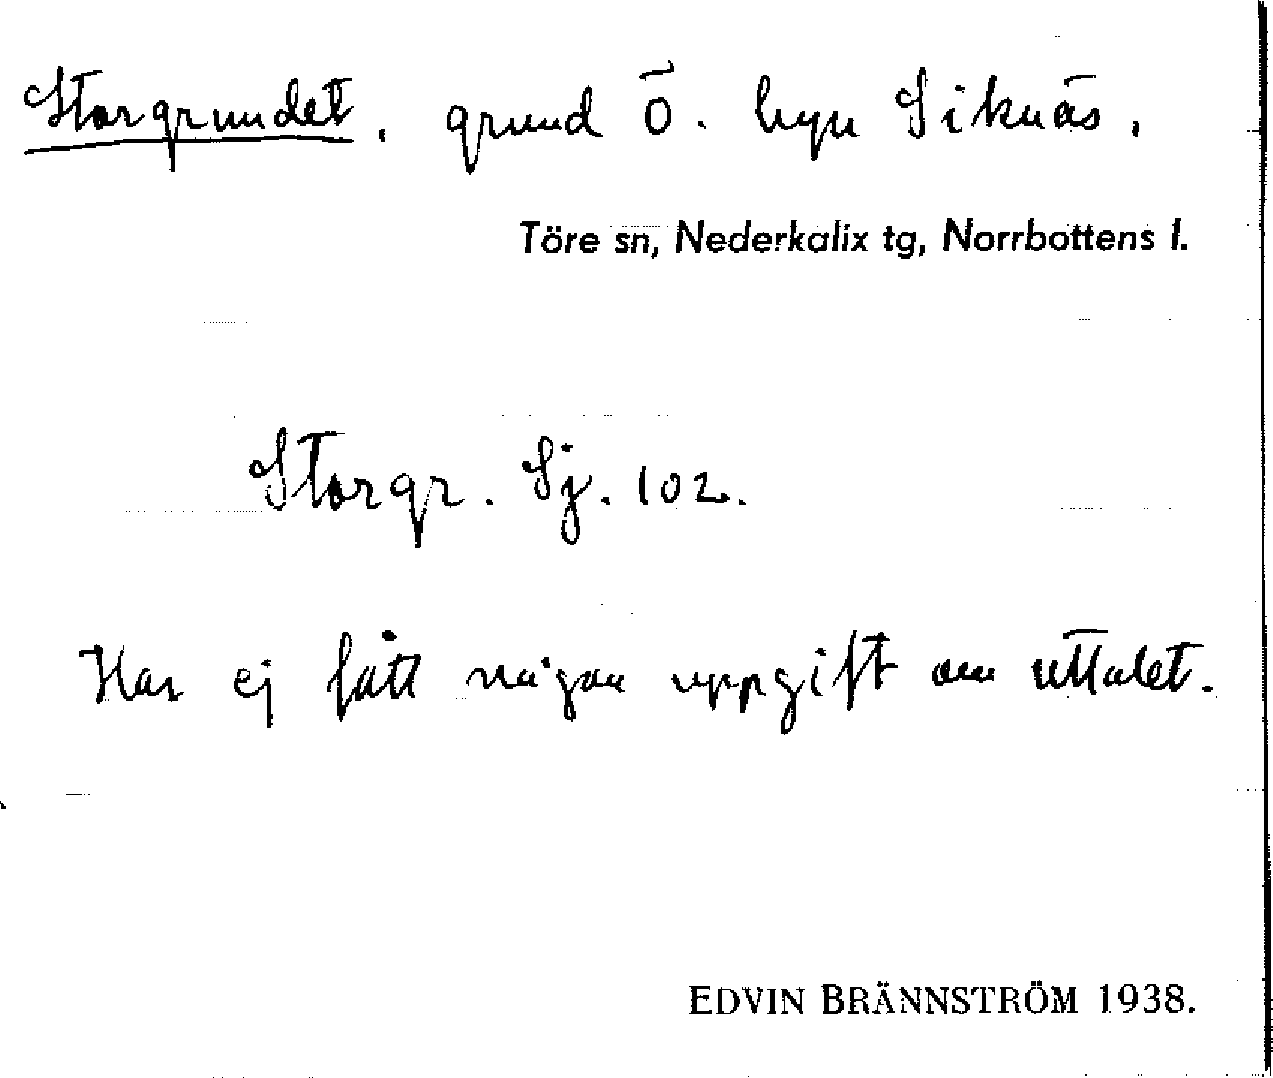 Storgrundet, grund Ö. byn Siknäs,
Töre sn, Nederkalix tg, Norrbottens l.
Storgr. Sj. 102.
Har ej fått någon uppgift om uttalet.
EDVIN BRÄNNSTRÖM 1938.